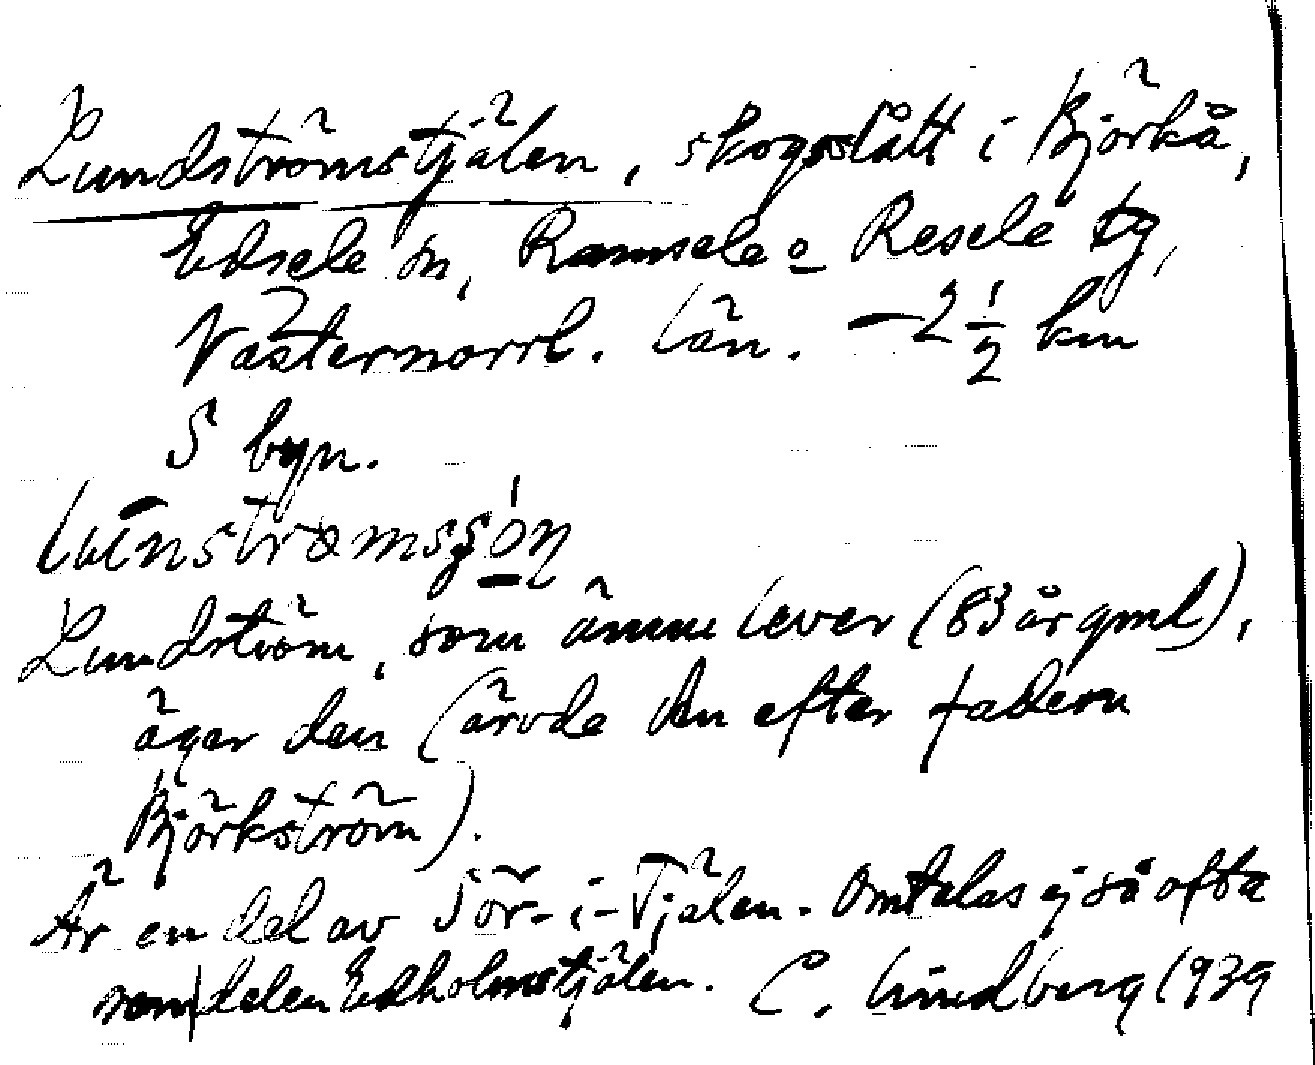 Lundströmstjälen, skogsslått i Björkå,
Edsele sn, Ramsele o Resele tg,
Västernorrl. län. – 2 1/2 km
S byn.
Lundström, som ännu lever (83 år gml),
äger den (ärvde den efter fadern
Björkström).
Är en del av Sör-i-Tjälen. Omtalas ej så ofta
som delen Edholmstjälen. C. Lindberg 1939